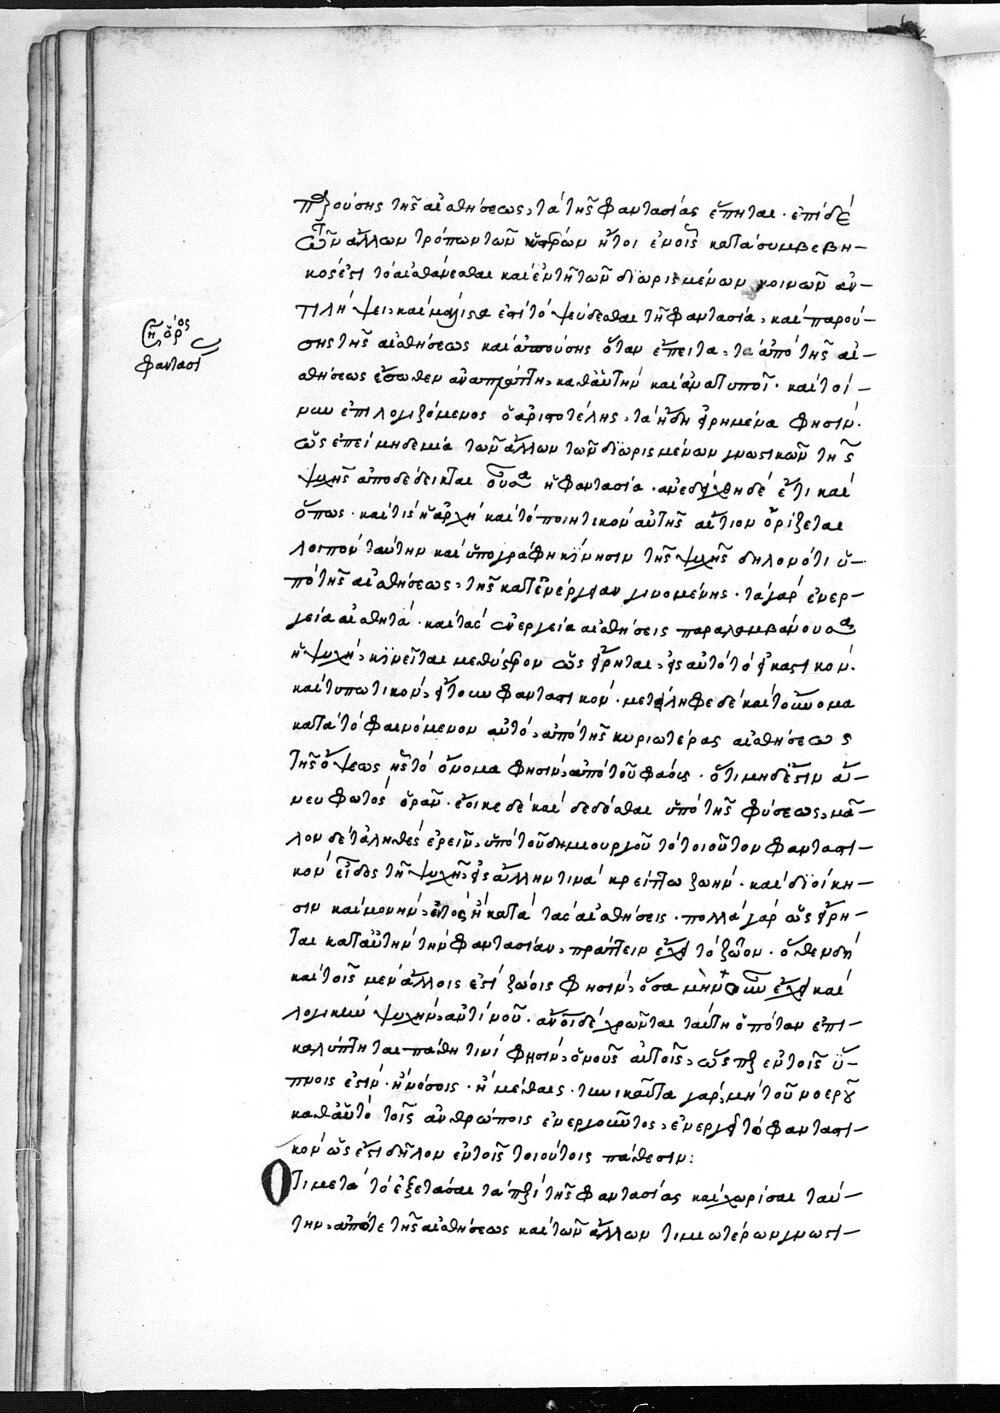 της αἰσθήσεως, τὰ τῆς φαντασίας ἕπηται· ἐπὶ δὲ
τῶν ἄλλων τρόπων τῶν ἤτοι ἐν οἷς κατὰ συμβεβη-
κός ἐστι τὸ αἰσθάνεσθαι καὶ ἐν τῇ τῶν διωρισμένων κοινῶν ἀν-
τιλήψει, καὶ μάλιστα ἐστὶ τὸ ψεύδεσθαι τῇ φαντασίᾳ, καὶ παρού-
σης τῆς αἰσθήσεως καὶ ἀπούσης ὅταν ἔπειτα, τὰ ἀπὸ τῆς αἰ-
σθήσεως ἔσωθεν ἀναπράττῃ, καθ' αὑτὴν καὶ ἀνατυποῖ· καὶ τοί-
νυν ἐπιλογιζόμενος ὁ ἀριστοτέλης, τὰ ἤδη εἰρημένα φησίν.
ὡς ἐπεὶ μηδεμία τῶν ἄλλων τῶν διωρισμένων γνωστικῶν τῆς
ψυχῆς ἀποδέδεικται οὖσα ἡ φαντασία· ἀνεδείχθη δὲ ἔτι καὶ
ὅπως· καὶ τίς ἡ ἀρχὴ καὶ τὸ ποιητικὸν αὐτῆς αἴτιον ὁρίζεται
λοιπὸν ταύτην καὶ ὑπογράφη κίνησιν τῆς ψυχῆς δηλονότι ὑ-
πὸ τῆς αἰσθήσεως, τῆς κατ' ἐνέργειαν γινομένης· τὰ γὰρ ἐνερ-
γείᾳ αἰσθητά· καὶ τὰς ἐνεργείᾳ αἰσθήσεις παραλαμβάνουσα
ἡ ψυχή, κινεῖται μεθύστερον ὡς εἴρηται, εἰς αὐτὸ τὸ εἰκαστικόν.
καὶ τυπωτικόν, ἤτοι φανταστικόν· μετείληφε δὲ καὶ τοὔνομα
κατὰ τὸ φαινόμενον αὐτό, ἀπὸ τῆς κυριωτέρας αἰσθήσεως
τῆς ὄψεως ἧς τὸ ὄνομα φησίν, ἀπὸ τοῦ φάους· ὅτι μηδ' ἔστιν ἄ-
νευ φωτὸς ὁρᾶν· ἔοικε δὲ καὶ δεδόσθαι ὑπὸ τῆς φύσεως, μᾶλ-
λον δὲ τἀληθὲς ἐρεῖν, ὑπὸ τοῦ δημιουργοῦ τὸ τοιοῦτον φανταστι-
κὸν εἶδος τῇ ψυχῇ, εἰς ἄλλην τινὰ κρείττω ζωήν· καὶ διοίκη-
σιν καὶ μονήν, ἐκτὸς ἢ κατὰ τὰς αἰσθήσεις· πολλὰ γὰρ ὡς εἴρη-
ται κατ' αὐτὴν τὴν φαντασίαν, πράττειν ἔχει τὸ ζῷον· ὅθεν δὴ
καὶ τοῖς μὲν ἄλλοις ἐστὶ ζῴοις φησίν, ὅσα μὴν ἔχει καὶ
λογικὴν ψυχήν, ἀντὶ νοῦ· ἄνοι δὲ χρῶνται ταύτῃ ὁπόταν ἐπι-
καλύπτηται πάθη τινὶ φησίν, ὁ νοῦς αὐτοῖς, ὥσπερ ἐν τοῖς ὕ-
πνοις ἐστίν· ἢ νόσοις· ἢ μέθαις· τηνικαῦτα γὰρ, μὴ τοῦ νοεροῦ
καθ' αὑτὸ τοῖς ἀνθρώποις ἐνεργοῦντος, ἐνεργεῖ τὸ φανταστι-
κὸν ὡς ἔστι δῆλον ἐν τοῖς τοιούτοις πάθεσιν:
Ὅτι μετὰ τὸ ἐξετάσαι τὰ περὶ τῆς φαντασίας καὶ χωρίσαι ταύ-
την, ἀπό τε τῆς αἰσθήσεως καὶ τῶν ἄλλων τιμιωτέρων γνωστι-
ὅρος
φαντασί